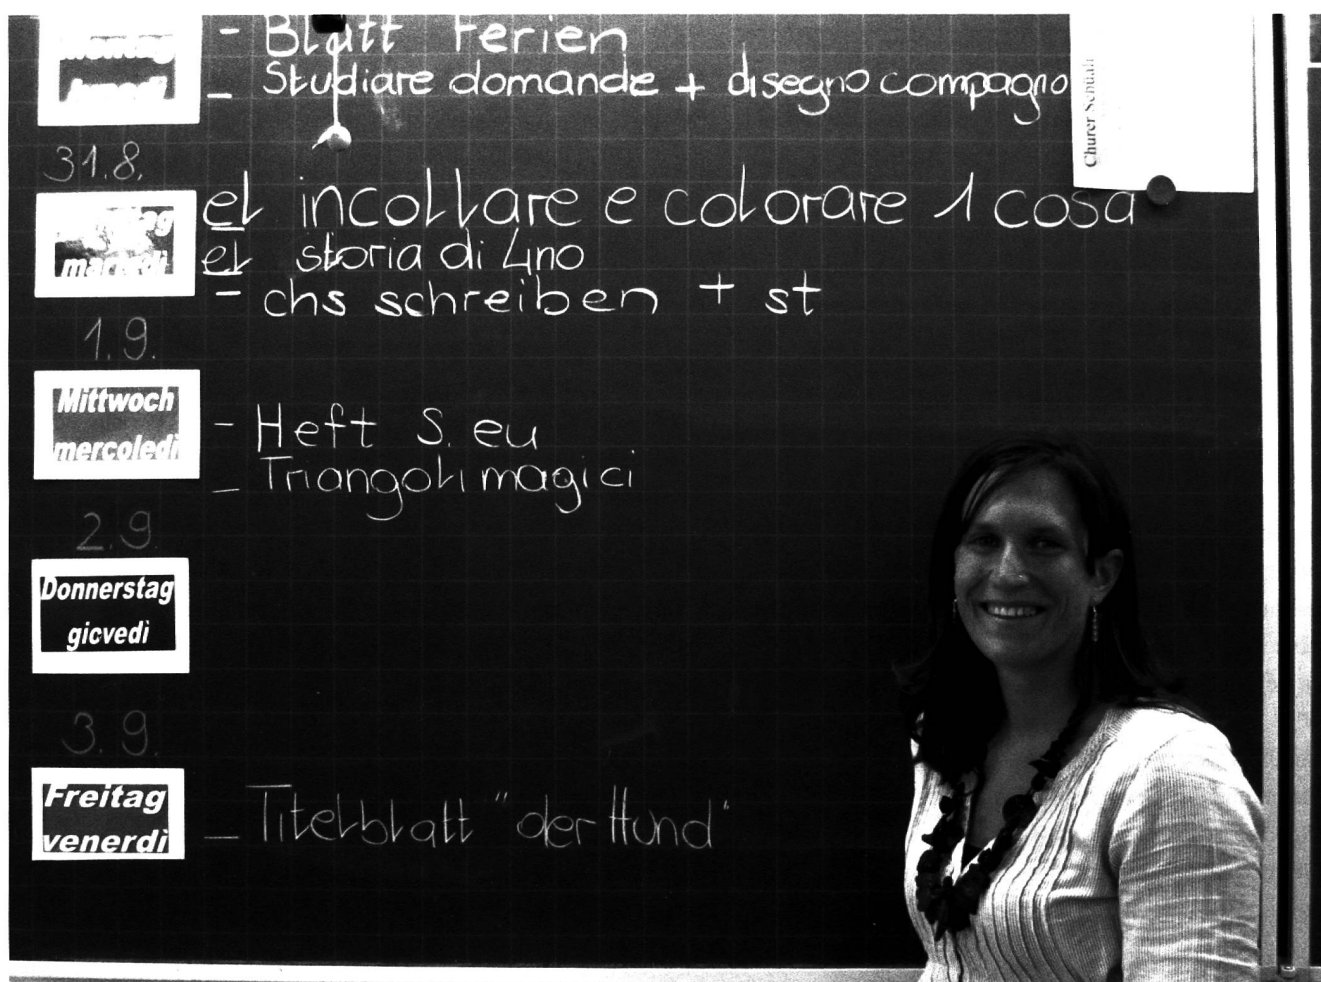 - Blatt Ferien
- Studiare domande + disegno compagno
Churer Schulen
31.8.
martedì
el incollare e colorare 1 cosa
el storia di Lino
- chs schreiben + st
1.9.
Mittwoch
mercoledì
- Heft S. eu
- Triangoli magici
2.9.
Donnerstag
giovedì
3.9.
Freitag
venerdì
- Titelblatt "der Hund"